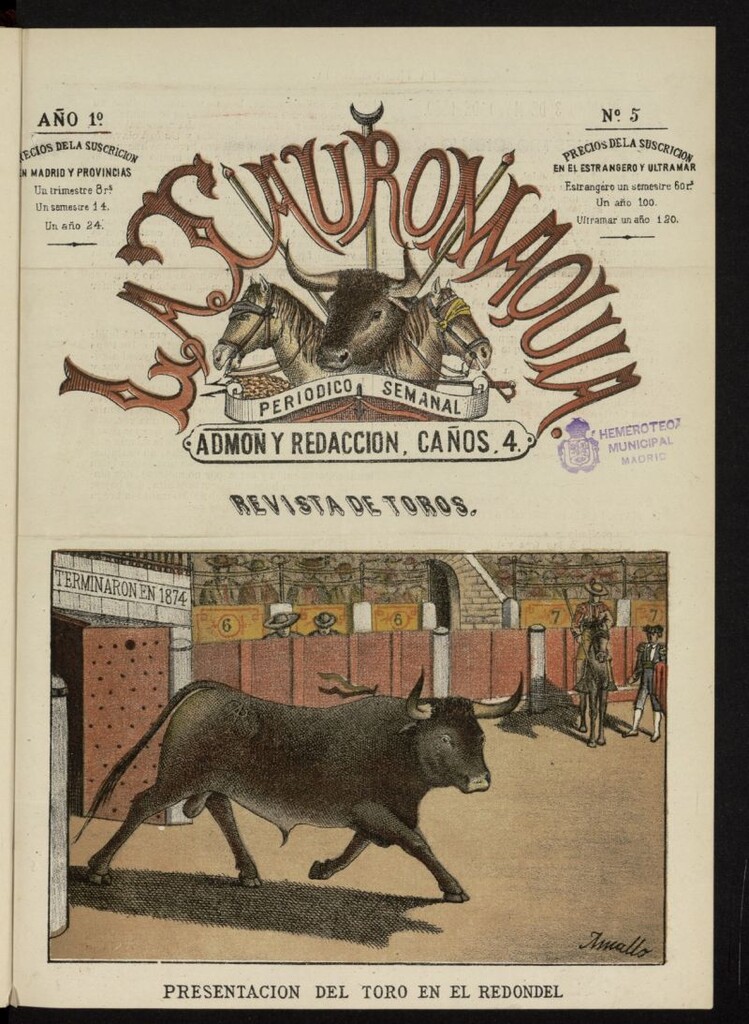 AÑO 1º
Nº 5
PRECIOS DE LA SUSCRICION
EN MADRID Y PROVINCIAS
Un trimestre 8 rˢ
Un semestre 14.
Un año 24.
PRECIOS DE LA SUSCRICION
EN EL ESTRANGERO Y ULTRAMAR
Estrangero un semestre 60 rˢ
Un año 100.
Ultramar un año 120.
LA TAUROMAQUIA.
PERIODICO SEMANAL
ADMON Y REDACCION, CAÑOS, 4.
HEMEROTECA
MUNICIPAL
MADRID
REVISTA DE TOROS.
TERMINARON EN 1874
6
6
7
7
PRESENTACION DEL TORO EN EL REDONDEL